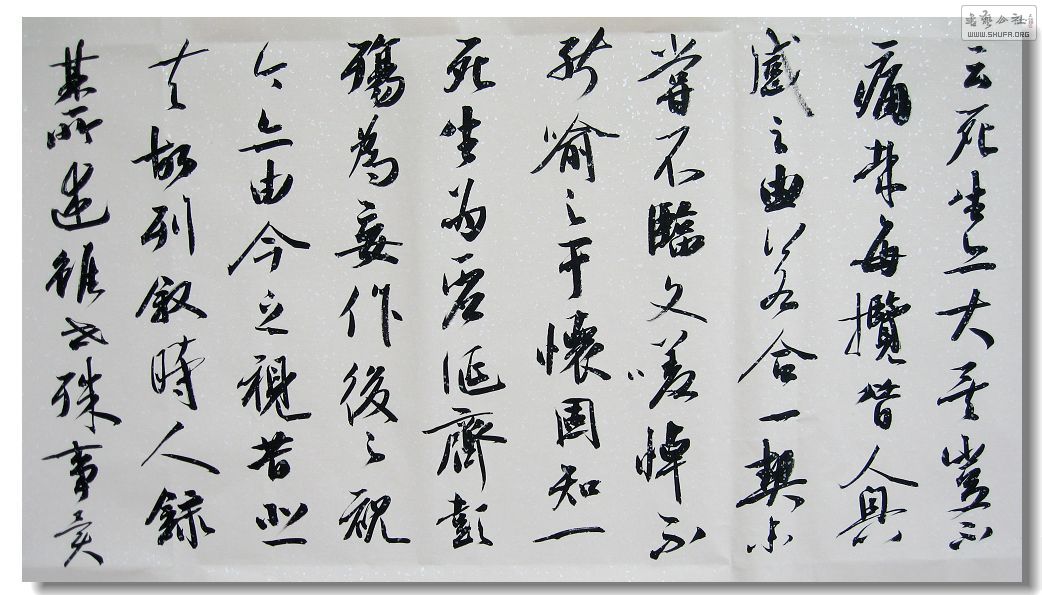 云死生亦大矣豈不
痛哉每攬昔人興
感之由若合一契未
嘗不臨文嗟悼不
能喻之于懷固知一
死生為虛誕齊彭
殤為妄作後之視
今亦由今之視昔悲
夫故列敘時人錄
其所述雖世殊事異
書藝公社
WWW.SHUFA.ORG